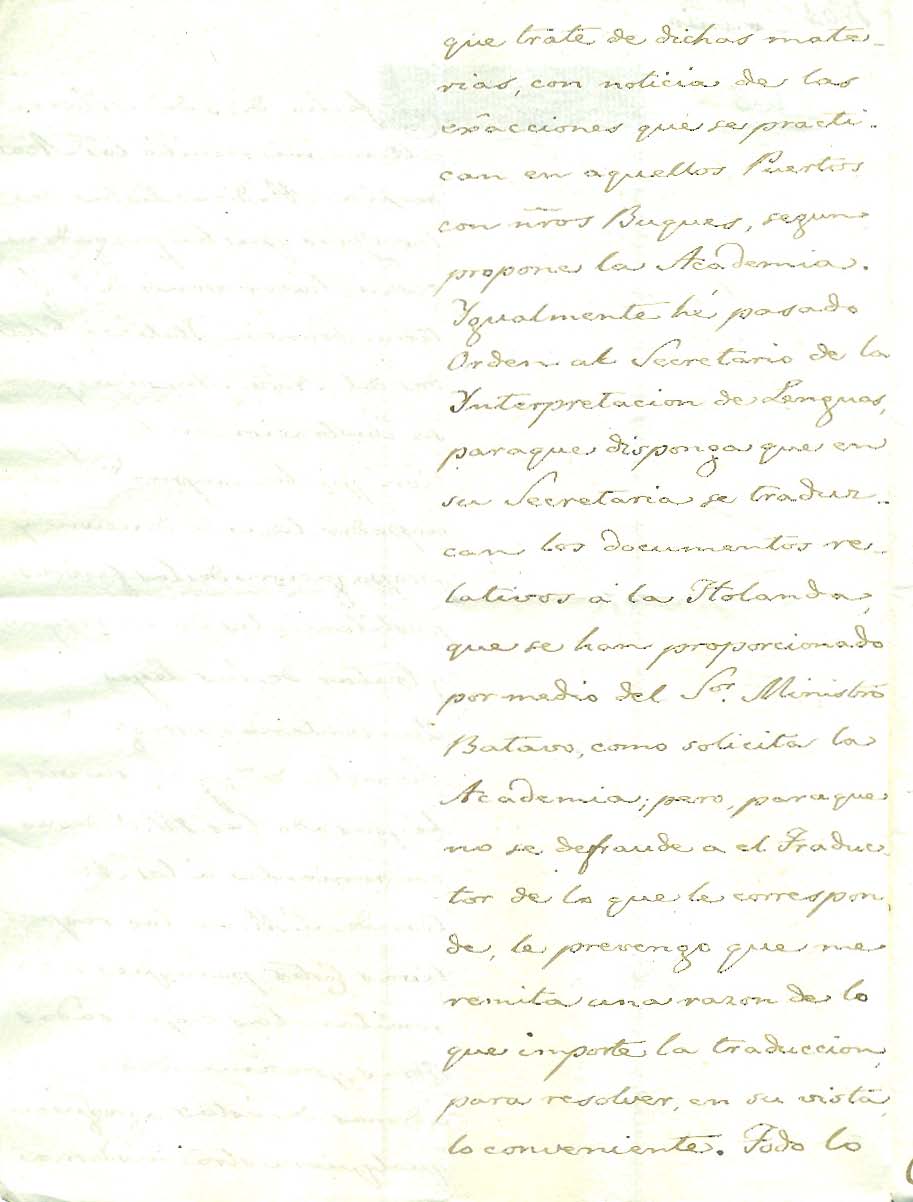 que trate de dichas mate-
rias, con noticia de las
exâcciones que se practi-
can en aquellos Puertos
con nr̃os Buques, segun
propone la Academia.
Ygualmente hé pasado
Orden al Secretario de la
Ynterpretacion de Lenguas,
paraque disponga que en
su Secretaria se traduz-
can los documentos re-
lativos á la Holanda,
que se han proporcionado
por medio del Sor. Ministro
Batavo, como solicita la
Academia; pero, paraque
no se defraude a el Traduc-
tor de lo que le correspon-
de, le prevengo que me
remita una razon de lo
que importe la traduccion,
para resolver, en su vista,
lo conveniente. Todo lo